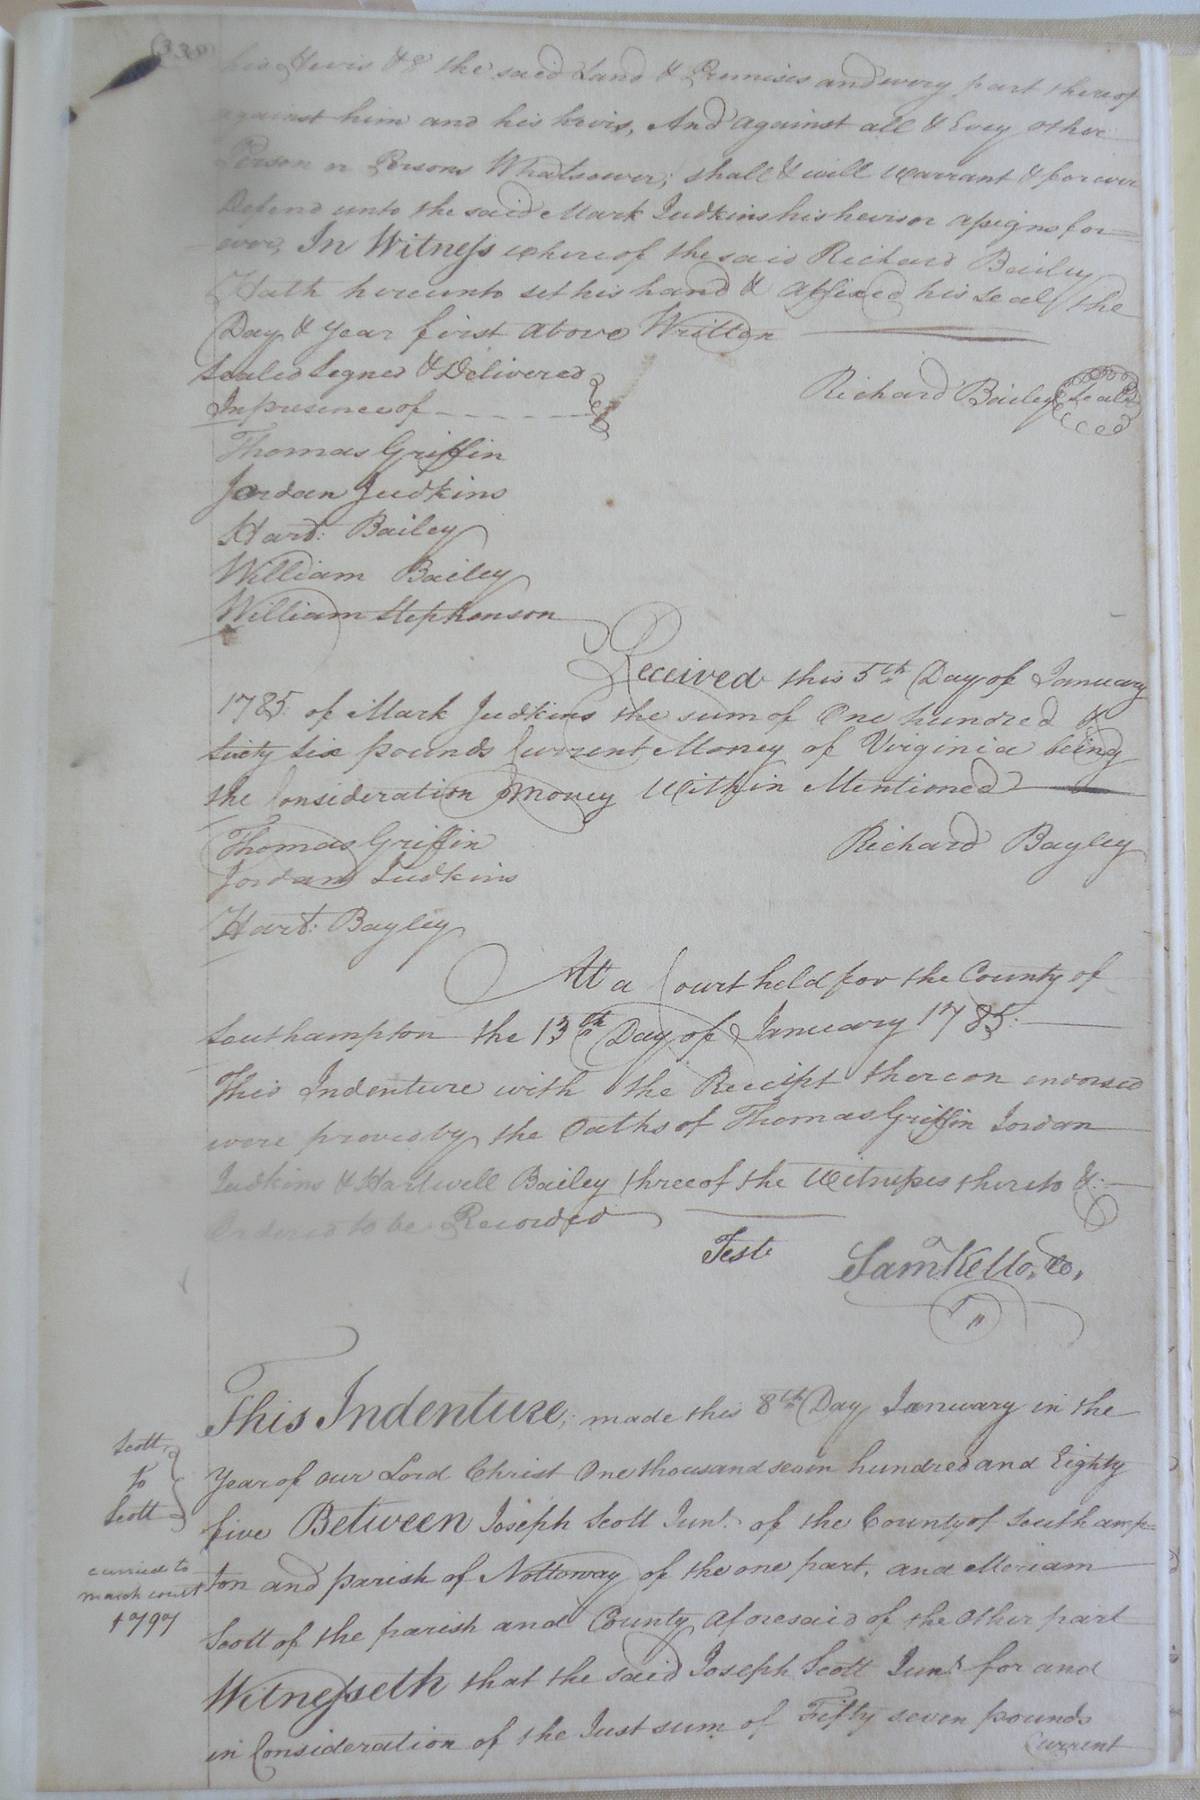 his Heris &c the said Land & Premises and every part thereof
against him and his heris, And against all & Evey other
Person or Persons Whatsoever; shall & will warrant & forever
Defend unto the said Mark Judkins his heris or assigns for=
ever, In Witness whereof the said Richard Bailey
Hath hereunto set his hand & Affixed his Seal the
Day & Year first above Written
Sealed Segned & Delivered
In presence of
Richard Bailey Seal
Thomas Griffin
Jordan Judkins
Hard: Bailey
William Bailey
William Stephenson
Received this 5th Day of January
1785 of Mark Judkins the sum of One hundred &
Sixty Six pounds Current Money of Virginia being
the Consideration Money Within Mentioned
Thomas Griffin
Richard Bayley
Jordan Judkins
Hart: Bayley
At a Court held for the County of
Southampton the 13th Day of January 1785:
This Indenture with the Receipt thereon endorsed
were proved by the Oaths of Thomas Griffin Jordan
Judkins & Hartwell Bailey three of the Witnesses thereto &:
Ordered to be Recorded
Teste Saml Kello, Co,
This Indenture, made this 8th Day January in the
Scott
to
Scott
Year of our Lord Christ One thousand seven hundred and Eighty
five Between Joseph Scott Junr. of the County of Southamp=
carried to
march court
1797
ton and parish of Nottoway of the one part, and Meriam
Scott of the parish and County Aforesaid of the other part
Witnesseth that the said Joseph Scott Junr for and
in Consideration of the Just sum of Fifty seven pounds
Current